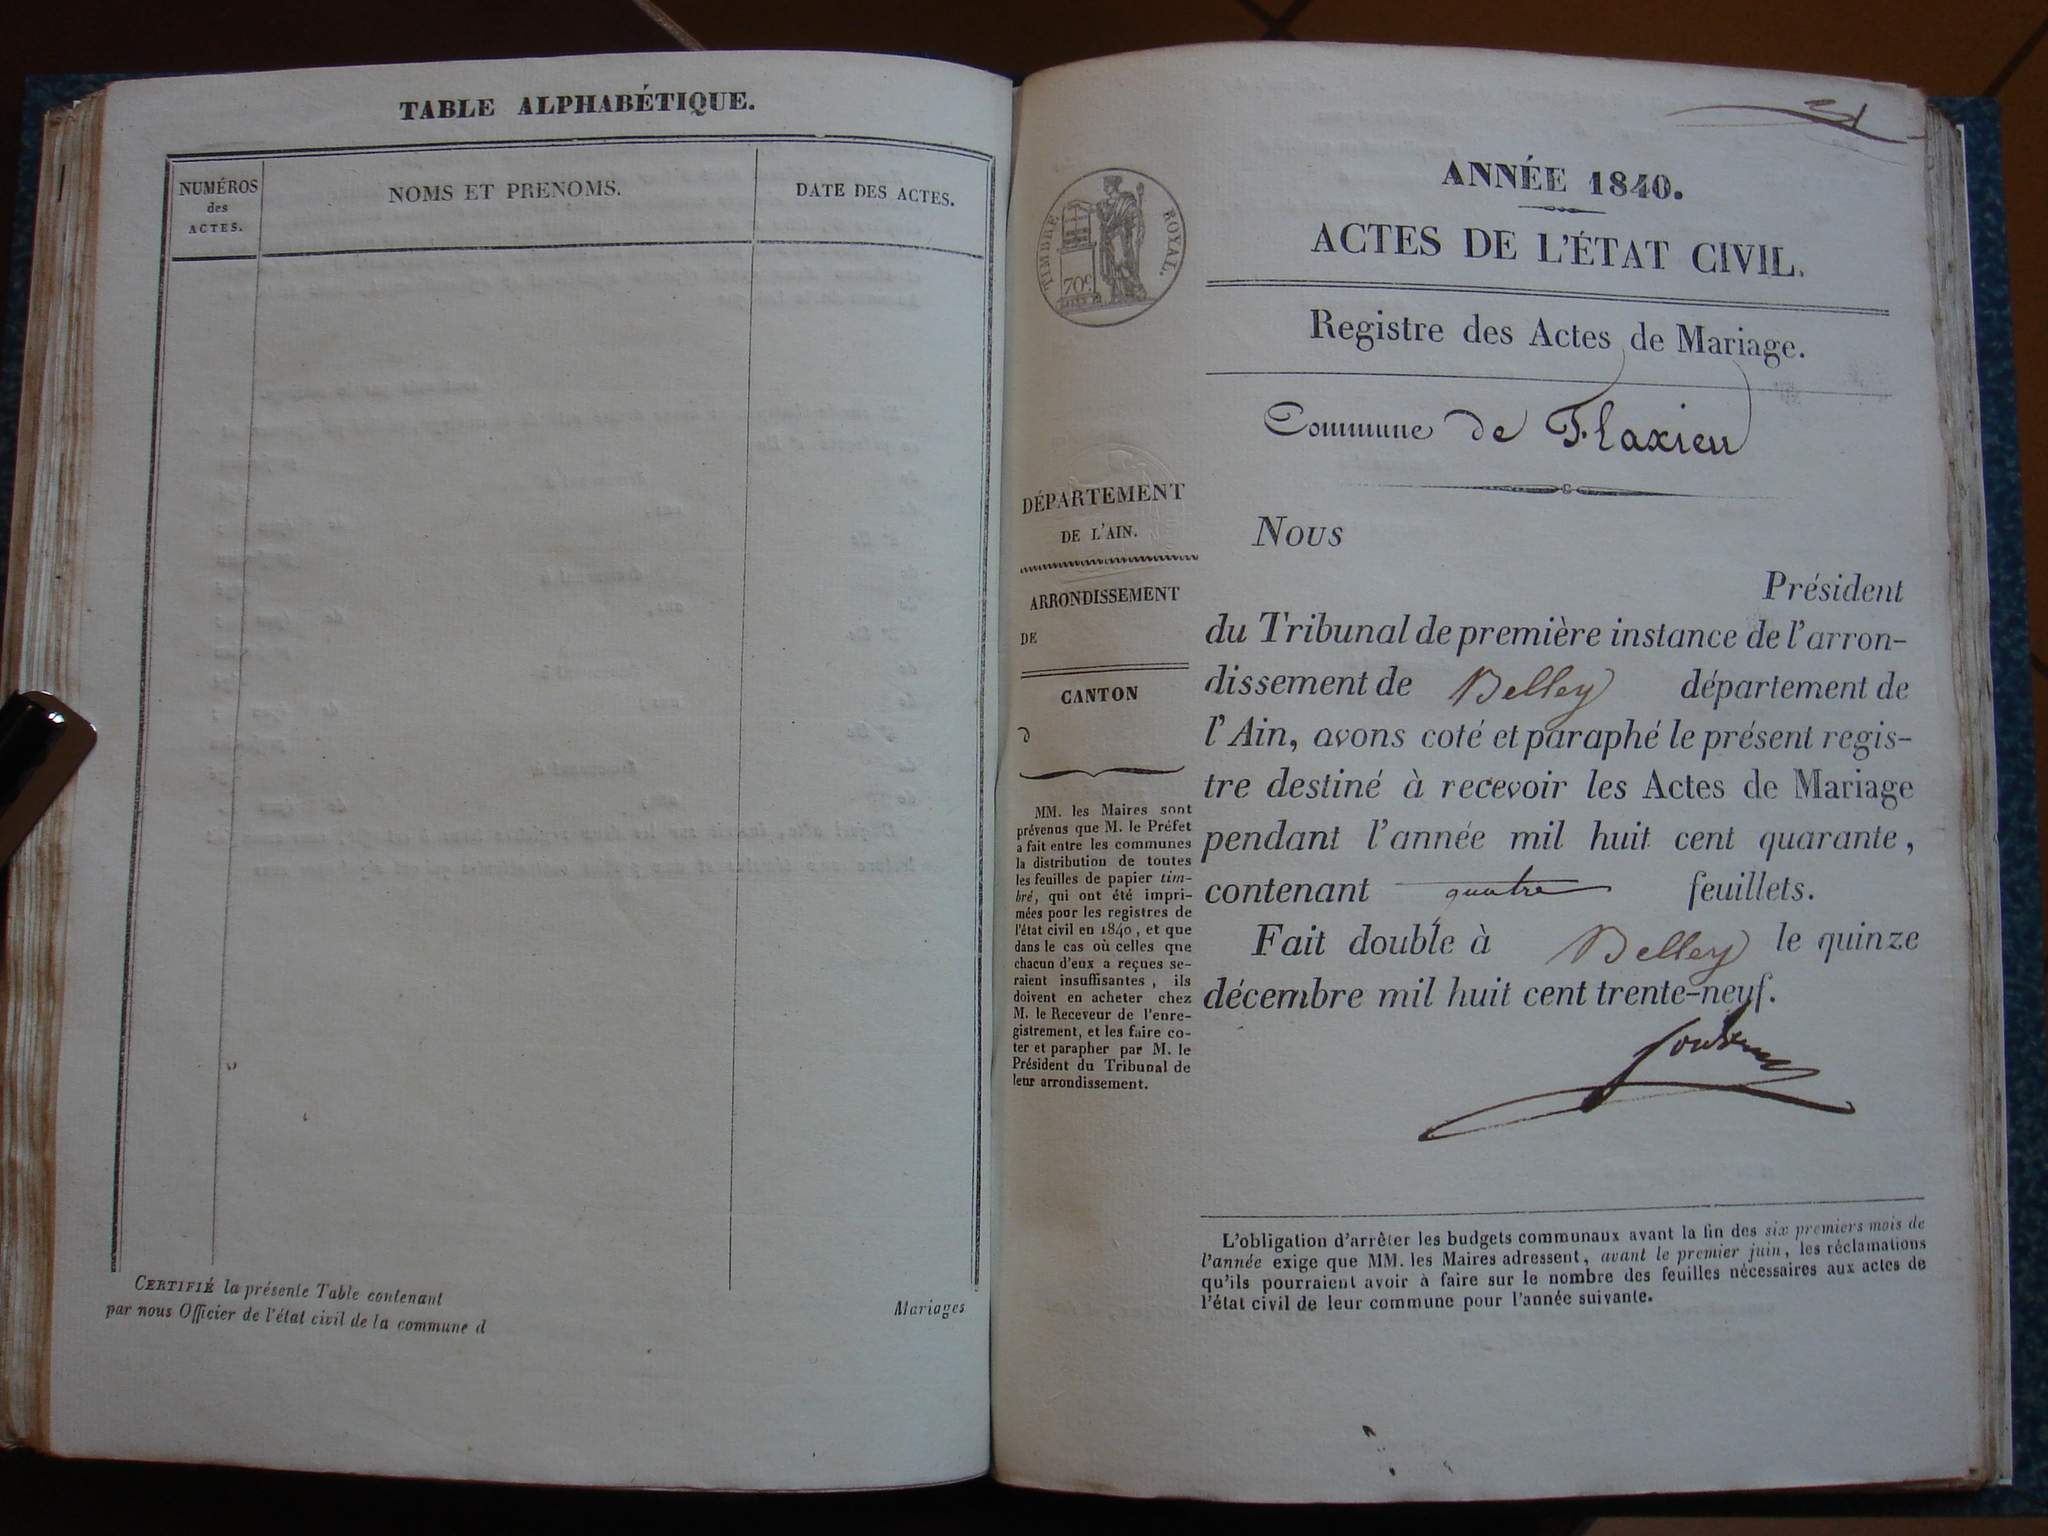 TABLE ALPHABÉTIQUE.
NUMÉROS
des
ACTES.
NOMS ET PRENOMS.
DATE DES ACTES.
CERTIFIÉ la présente Table contenant
par nous Officier de l'état civil de la commune d
Mariages
ANNÉE 1840.
ACTES DE L'ÉTAT CIVIL.
TIMBRE ROYAL.
70c
Registre des Actes de Mariage.
Commune de Flaxieu
DÉPARTEMENT
DE L'AIN.
ARRONDISSEMENT
DE
CANTON
d
MM. les Maires sont
prévenus que M. le Préfet
a fait entre les communes
la distribution de toutes
les feuilles de papier tim-
bré, qui ont été impri-
mées pour les registres de
l'état civil en 1840, et que
dans le cas où celles que
chacun d'eux a reçues se-
raient insuffisantes, ils
doivent en acheter chez
M. le Receveur de l'enre-
gistrement, et les faire co-
ter et parapher par M. le
Président du Tribunal de
leur arrondissement.
Nous
Président
du Tribunal de première instance de l'arron-
dissement de Belley département de
l'Ain, avons coté et paraphé le présent regis-
tre destiné à recevoir les Actes de Mariage
pendant l'année mil huit cent quarante,
contenant quatre feuillets.
Fait double à Belley le quinze
décembre mil huit cent trente-neuf.
L'obligation d'arrêter les budgets communaux avant la fin des six premiers mois de
l'année exige que MM. les Maires adressent, avant le premier juin, les réclamations
qu'ils pourraient avoir à faire sur le nombre des feuilles nécessaires aux actes de
l'état civil de leur commune pour l'année suivante.